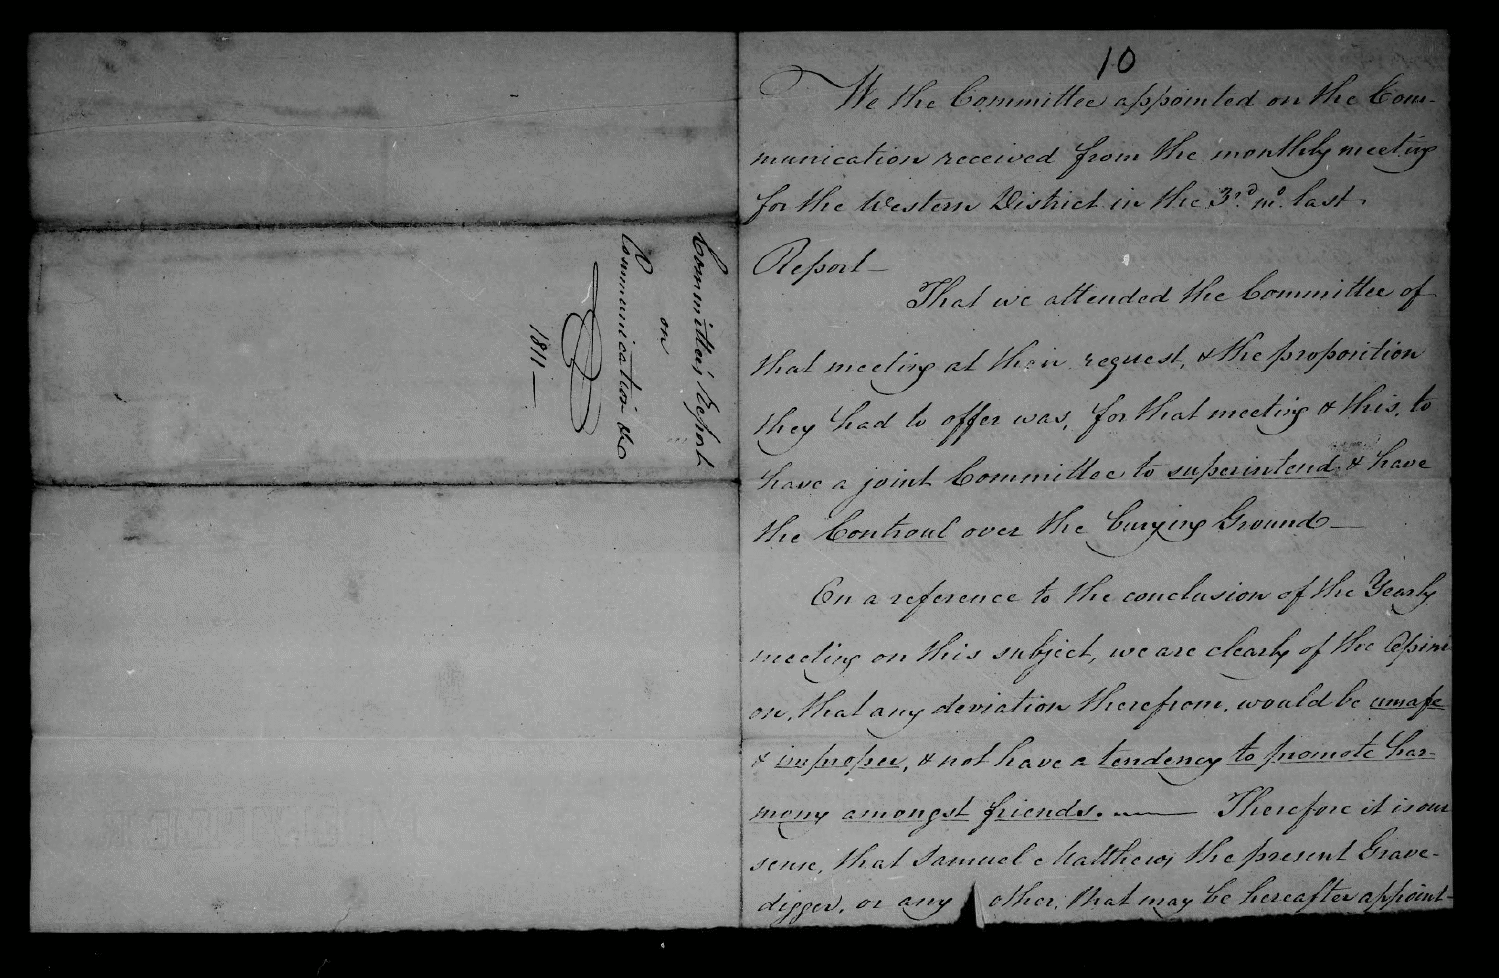 Committee's Report
on
Communication &c
1811 —
10
We the Committee appointed on the Com-
munication received from the monthly meeting
for the Western District in the 3.d mo. last.
Report —
That we attended the Committee of
that meeting at their request, & the proposition
they had to offer was, for that meeting & this, to
have a joint Committee to superintend & have
the Controul over the burying Ground —
On a reference to the conclusion of the Yearly
meeting on this subject, we are clearly of the Opini
on, that any deviation therefrom, would be unsafe
& improper, & not have a tendency to promote har-
mony amongst friends. — Therefore it is our
sense, that Samuel Matthews, the present Grave-
digger, or any other, that may be hereafter appoint-